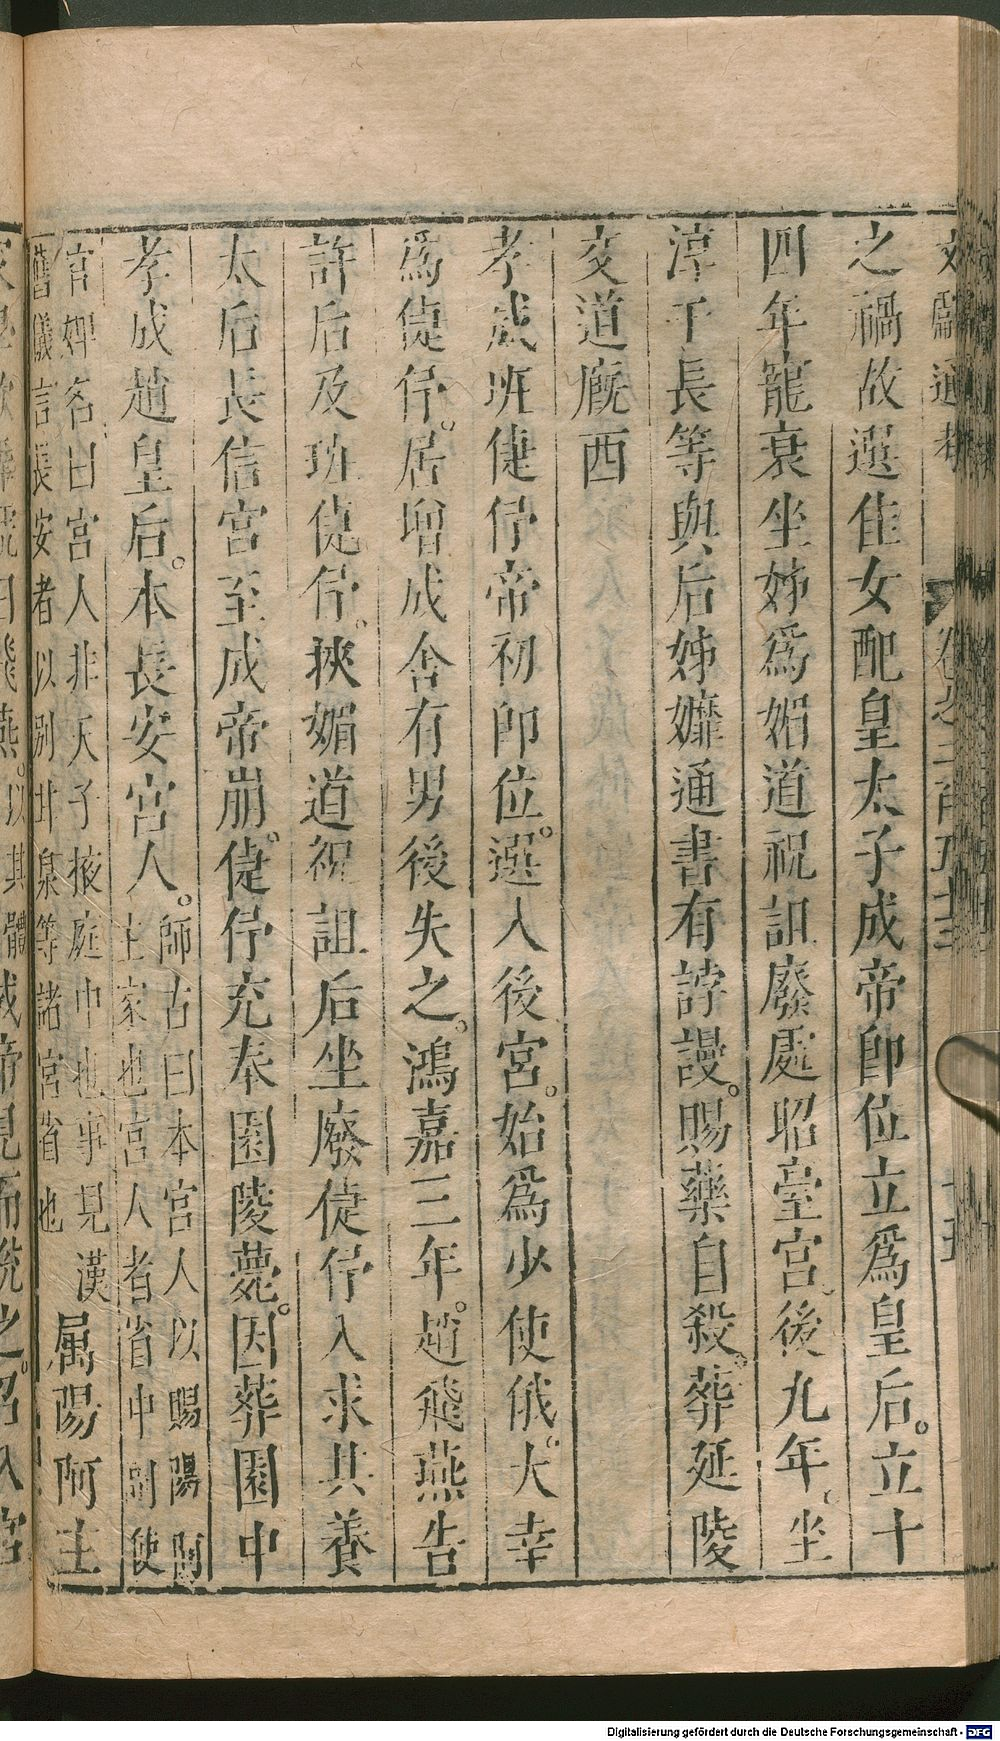 之禍故選佳女配皇太子成帝卽位立爲皇后。立十
四年寵衰坐姊爲媚道祝詛廢處昭臺宮後九年坐
淳于長等與后姊孊通書有誖謾。賜藥自殺。葬延陵
交道廐西
孝成班倢伃帝初卽位。選入後宮。始爲少使俄大幸
爲倢伃。居增成舍有男後失之。鴻嘉三年。趙飛燕告
許后及班倢伃。挾媚道祝詛后坐廢倢伃入求共養
太后長信宮至成帝崩。倢伃充奉園陵薨。因葬園中
孝成趙皇后。本長安宮人。師古曰本宮人以賜陽阿
主家也宮人者省中別使
官婢名曰宮人非天子掖庭中也事見漢
舊儀言長安者以別甘泉等諸宮省也
屬陽阿主
Digitalisierung gefördert durch die Deutsche Forschungsgemeinschaft - DFG